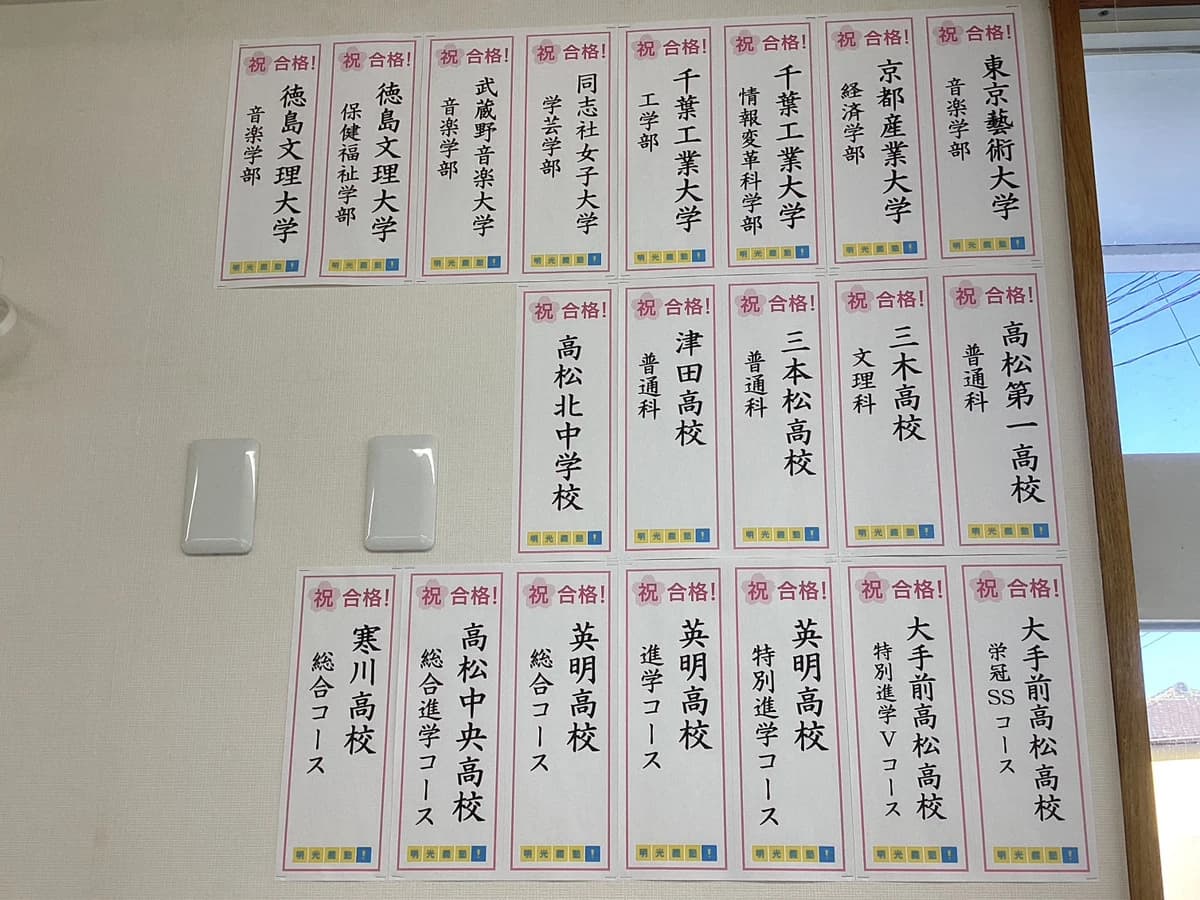 祝 合格!
東京藝術大学
音楽学部
明光義塾!
祝 合格!
京都産業大学
経済学部
明光義塾!
祝 合格!
千葉工業大学
情報変革科学部
明光義塾!
祝 合格!
千葉工業大学
工学部
明光義塾!
祝 合格!
同志社女子大学
学芸学部
明光義塾!
祝 合格!
武蔵野音楽大学
音楽学部
明光義塾!
祝 合格!
徳島文理大学
保健福祉学部
明光義塾!
祝 合格!
徳島文理大学
音楽学部
明光義塾!
祝 合格!
高松第一高校
普通科
明光義塾!
祝 合格!
三木高校
文理科
明光義塾!
祝 合格!
三本松高校
普通科
明光義塾!
祝 合格!
津田高校
普通科
明光義塾!
祝 合格!
高松北中学校
明光義塾!
祝 合格!
大手前高松高校
栄冠SSコース
明光義塾!
祝 合格!
大手前高松高校
特別進学Vコース
明光義塾!
祝 合格!
英明高校
特別進学コース
明光義塾!
祝 合格!
英明高校
進学コース
明光義塾!
祝 合格!
英明高校
総合コース
明光義塾!
祝 合格!
高松中央高校
総合進学コース
明光義塾!
祝 合格!
寒川高校
総合コース
明光義塾!